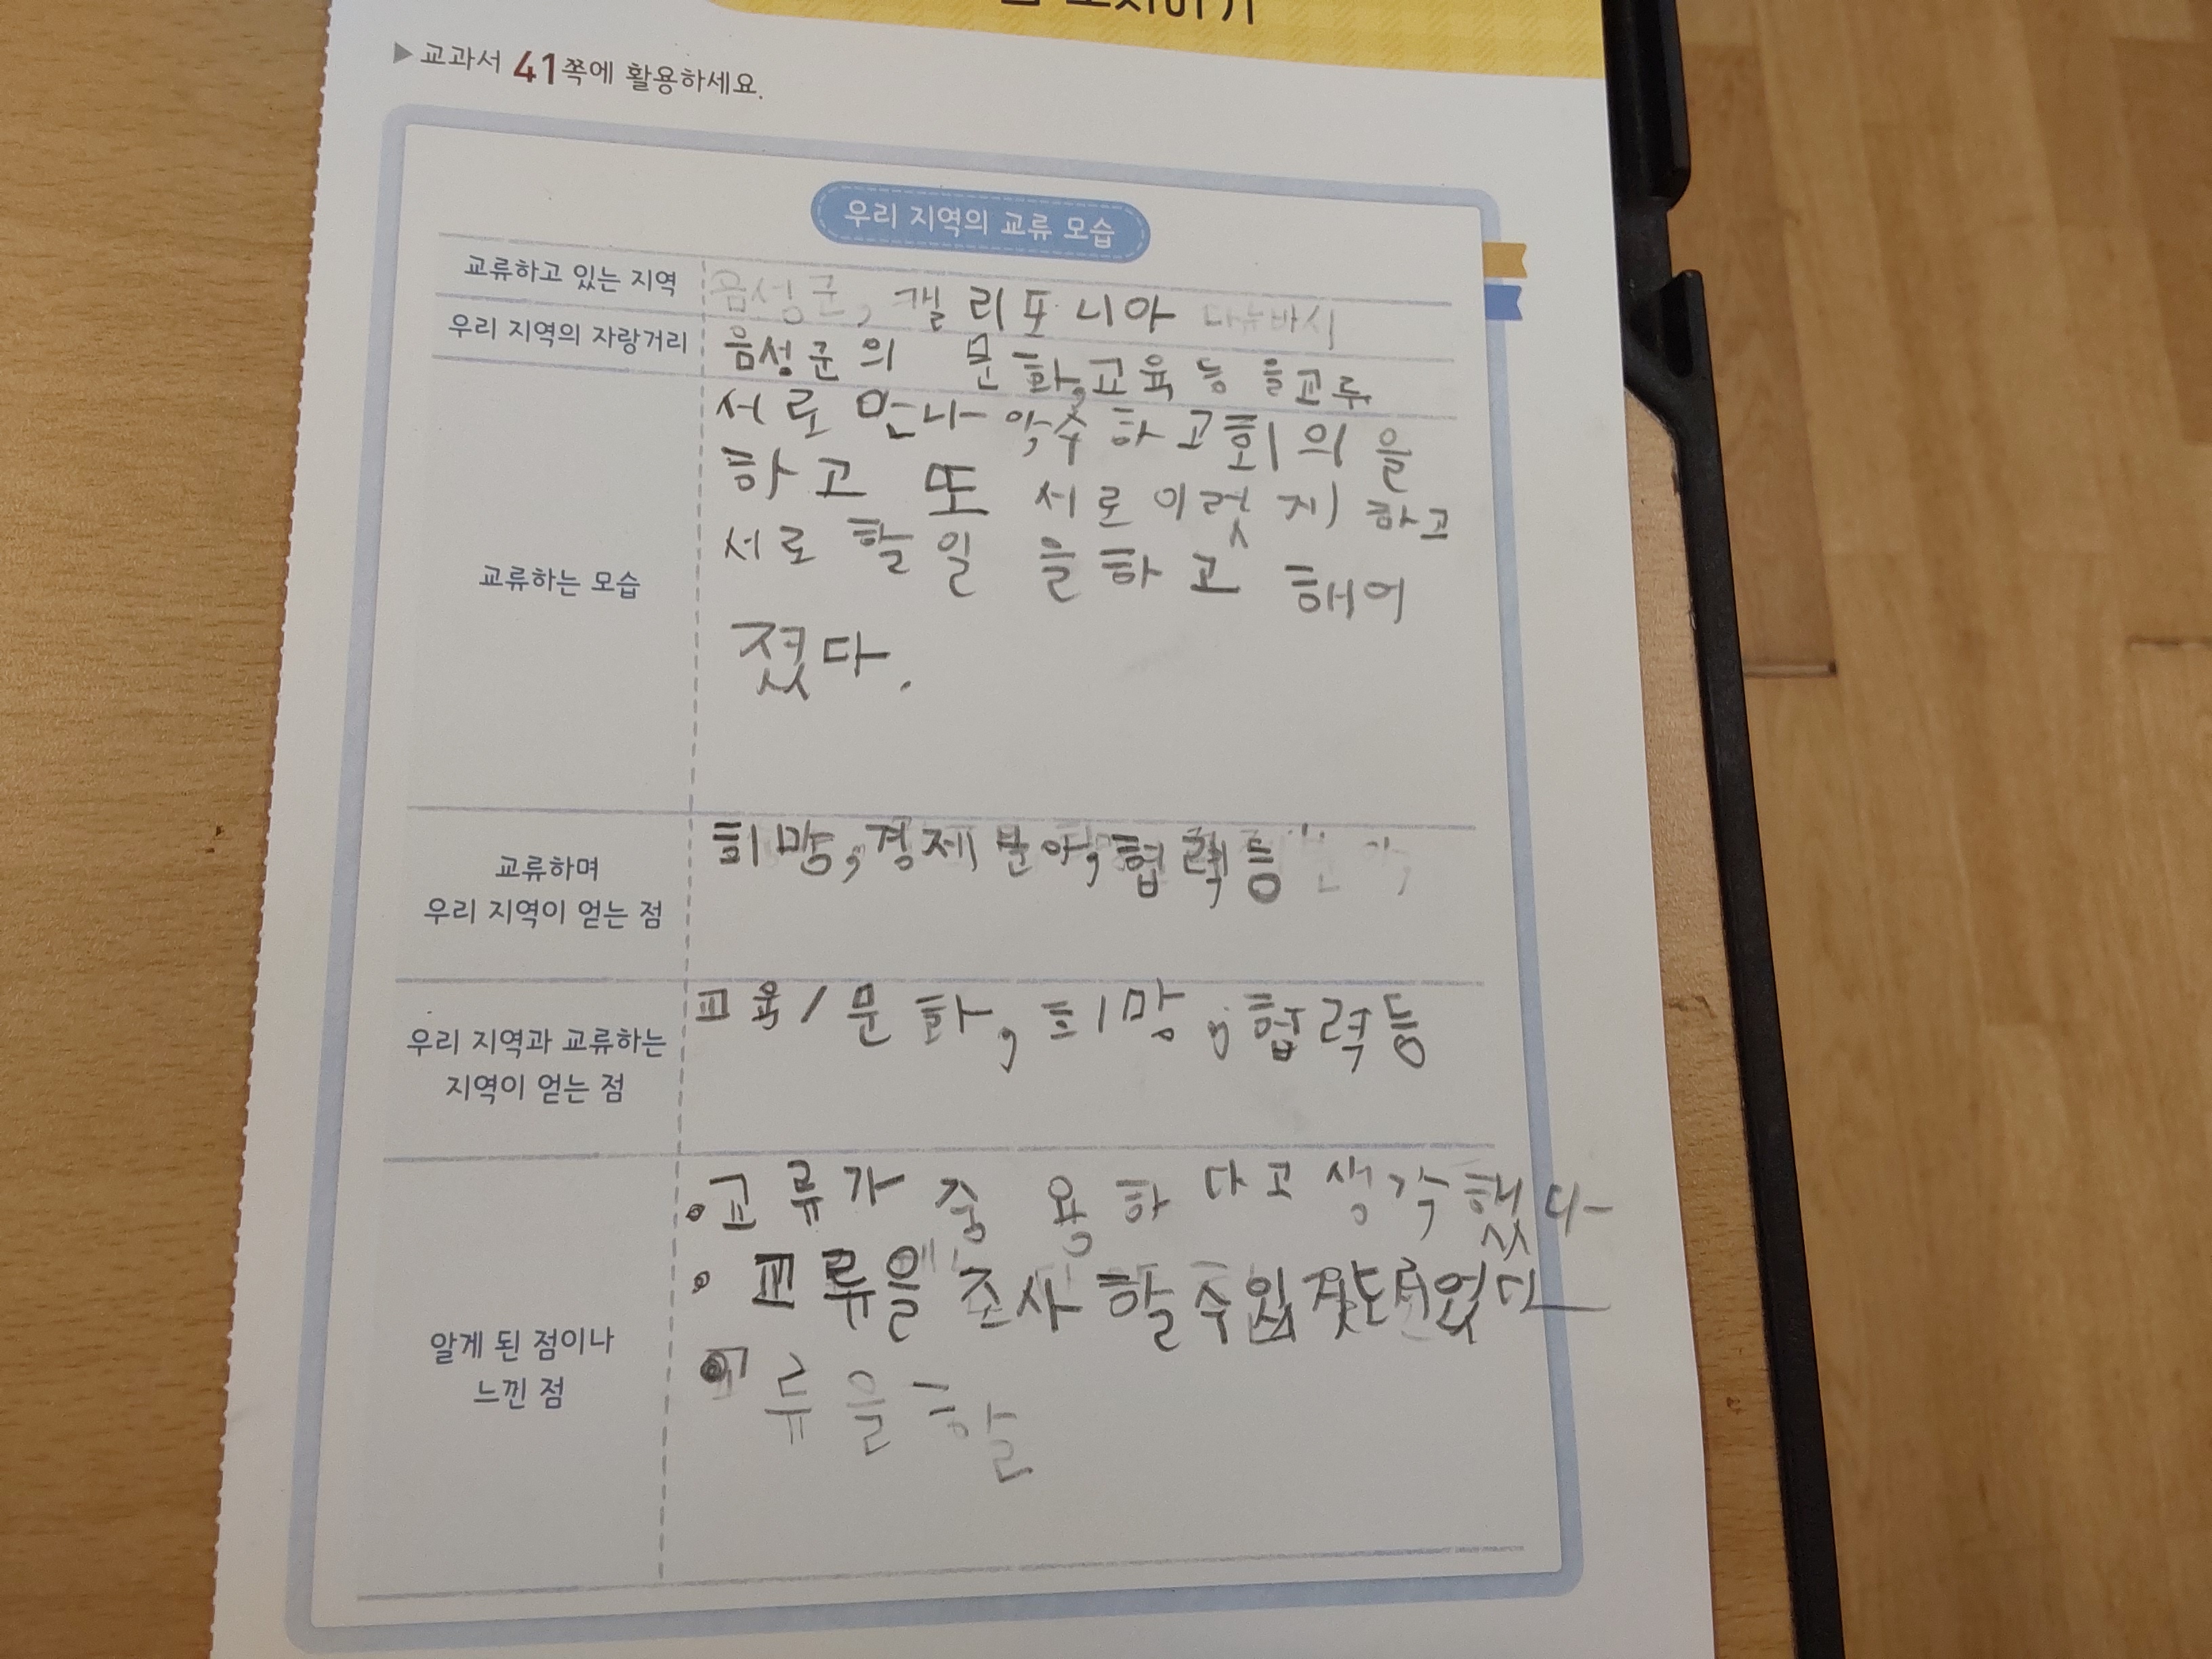 ▶ 교과서 41쪽에 활용하세요.
우리 지역의 교류 모습
교류하고 있는 지역
음성군, 캘리포니아 다뉴바시
우리 지역의 자랑거리
음성군의 문화,교육등 을교류
교류하는 모습
서로 만나 악수하고회의을
하고 또 서로이럿지하고
서로 할일 을하고 해어
젔다.
교류하며
우리 지역이 얻는 점
희망,경제분야,협력등
우리 지역과 교류하는
지역이 얻는 점
교육/문화, 희망,협력등
알게 된 점이나
느낀 점
•교류가 중용하다고생각했다
•교류을 조사할수있
류을할